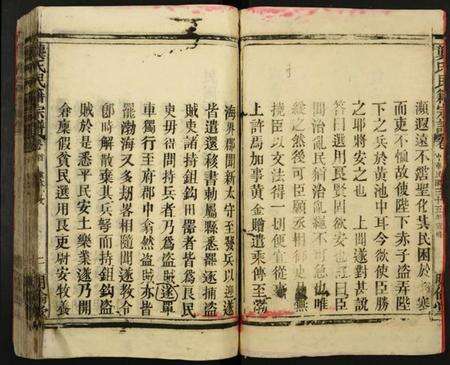 瀕遐遠不霑聖化其民困於飢寒
而吏不恤故使陛下赤子盜弄陛
下之兵於潢池中耳今欲使臣勝
之耶將安之也 上聞遂對甚說
答曰選用良賢固欲安也遂曰臣
聞治亂民猶治亂繩不可急也唯
緩之然後可臣願丞相御史無
撓臣以文法得一切便宜從事
上許焉加事黃金贈遣乘傳至渤
海界郡聞新太守至發兵以迎遂
皆遣還移書勅屬縣悉罷逐捕盜
賊吏諸持鋤鈎田器者皆為良民
吏毋得問持兵者乃為盜賊遂單
車獨行至府郡中翕然盜賊亦皆
罷渤海又多劫畧相隨聞遂教令
即時解散棄其兵弩而持鋤鈎盜
賊於是悉平民安土樂業遂乃開
倉廩假貧民選用良吏尉安牧養